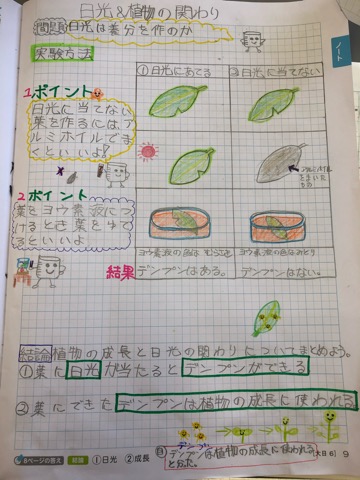 日光&植物の関わり
問題 日光は養分を作のか
ノート
実験方法
①日光にあてる
②日光に当てない
1ポイント
日光に当てない
葉を作るには、ア
ルミホイルでま
くといいよ!
2ポイント
葉をヨウ素液につ
けるとき葉をゆで
るといいよ
ヨウ素液の色は むらさき
デンプンはある。
デンプンはない。
結果
結論 植物の成長と日光の関わりについてまとめよう。
①葉に日光が当たるとデンプンができる
②葉にできたデンプンは植物の成長に使われる
デンプン
デンプンは植物の成長に使われる
と分た。
8ページの答え
①日光 ②成長
大日6 9